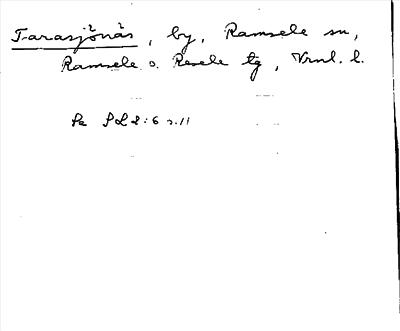 Tarasjönäs, by, Ramsele sn,
Ramsele o. Resele tg, Vrnl. l.
Se SOL 2:6 s.11